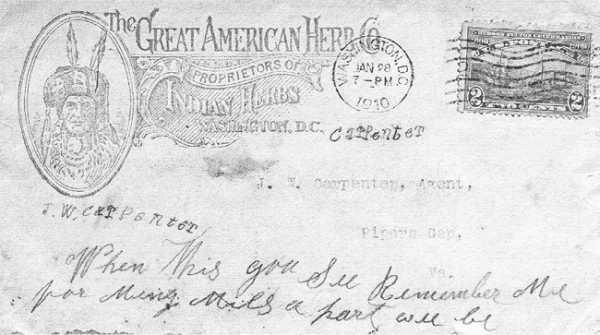 The GREAT AMERICAN HERB Co.
PROPRIETORS OF
INDIAN HERBS
WASHINGTON, D.C.
WASHINGTON, D.C.
JAN 28
7-PM
1910
HUDSON-FULTON CELEBRATION
2 CENTS 2
Carpenter
J. W. Carpenter, Agent,
Pipers Gap,
Va.
J. W. Carpenter,
When This you See Remember Me
for Meny Mils a part we be